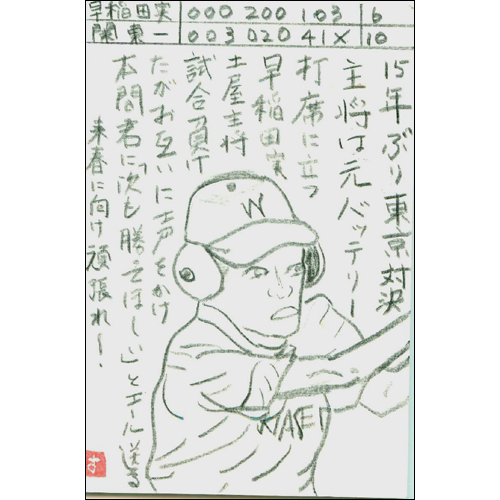 早稲田実 000 200 103 6
関東一 003 020 41X 10
15年ぶり東京対決
主将は元バッテリー
打席に立つ
早稲田実
土屋主将
試合負け
たがお互いに声をかけ
本間君に「次も勝ってほしい」とエール送る
来春に向け頑張れ!
W
WASED
す